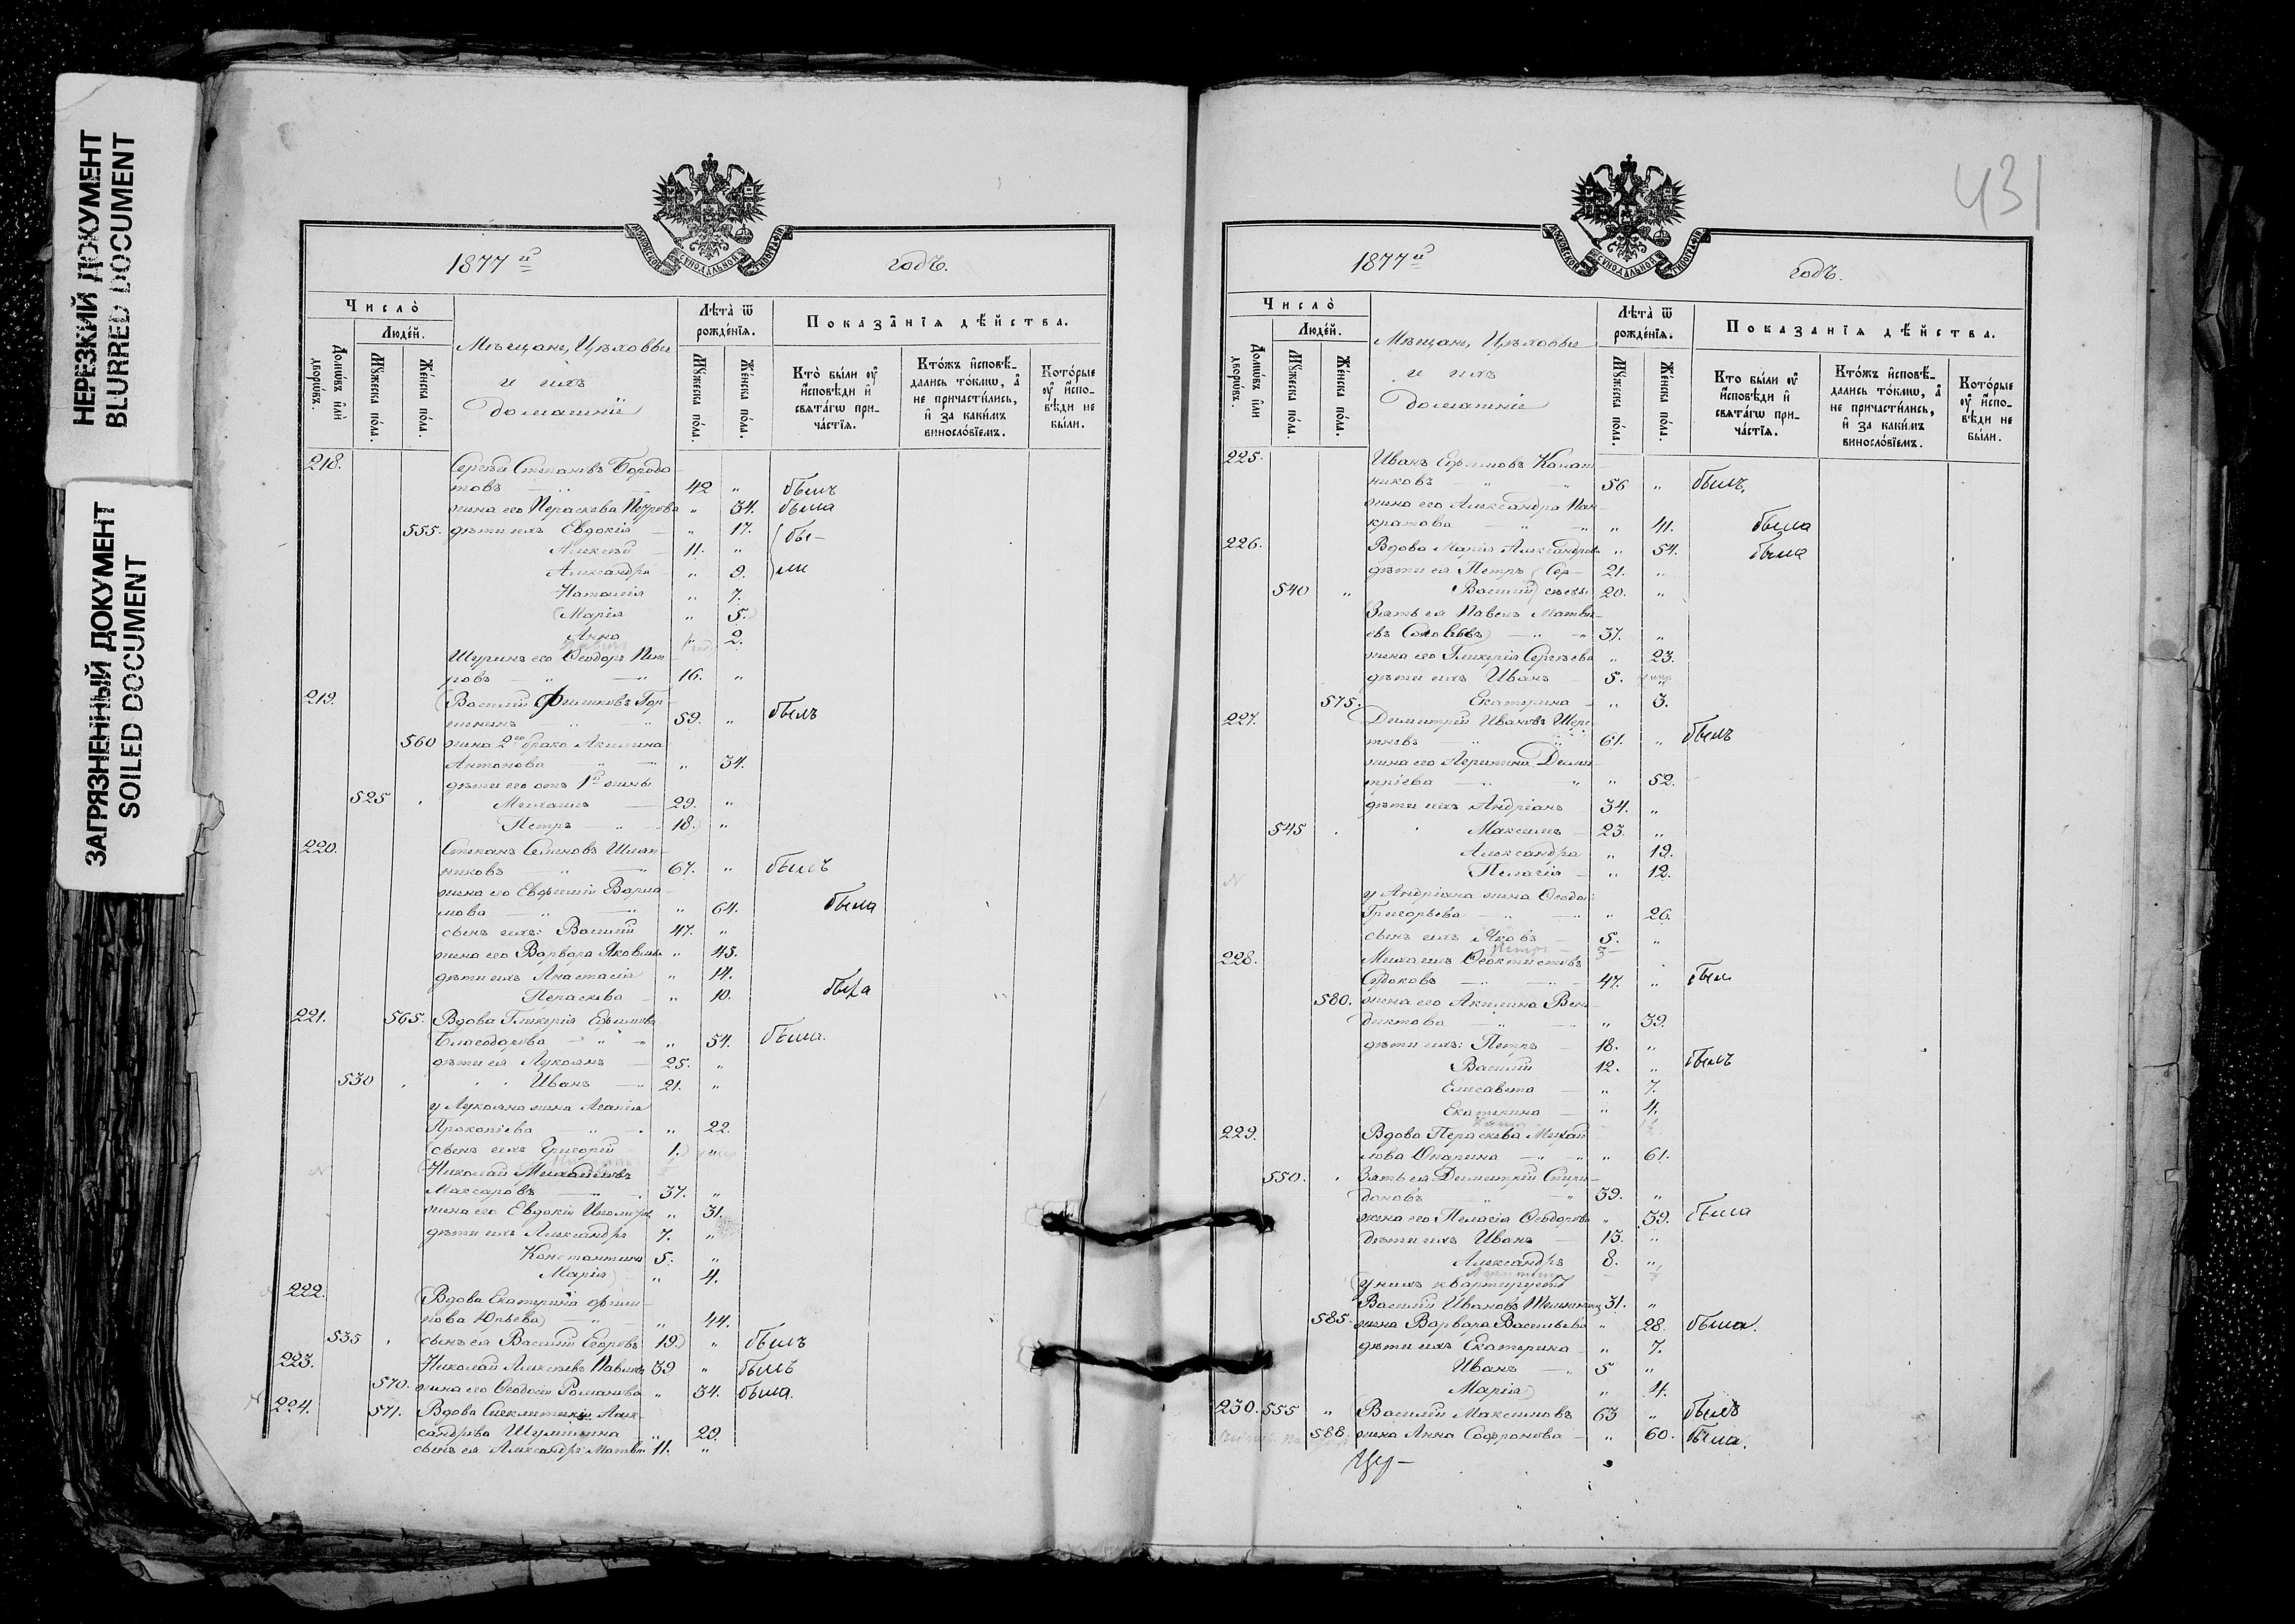 НЕРЕЗКИЙ ДОКУМЕНТ
BLURRED DOCUMENT
ЗАГРЯЗНЕННЫЙ ДОКУМЕНТ
SOILED DOCUMENT
МОСКОВСКОЙ СѴНОДАЛЬНОЙ ТИПОГРАФІИ
1877 й годъ.
Число̀
Людей.
Домѡвъ и҆лѝ дворѡвъ.
Мꙋжеска пола.
Женска пола.
Мѣщане, Цѣховые
и ихъ
домашніе
Лѣта̀ ѿ рожденїѧ.
Мꙋжеска пола.
Женска пола.
Показанїѧ дѣйства.
Кто̀ были ᲂу҆ и҆сповѣди и҆ свѧтагѡ причастїѧ.
Ктожъ и҆сповѣдались токмѡ, а҆ не причастились, и҆ за какимъ винословїемъ.
Которые ᲂу҆ и҆сповѣди не были.
218. Сергѣй Степановъ Бородатовъ 42 " былъ
жена его Параскева Петрова " 34. была
555. дѣти ихъ Евдокія " 17. бы-
Алексѣй 11. "
Александра " 9. ли
Наталія " 7.
Марія " 5.
Анна " 2.
Шуринъ его Ѳеодоръ Пет-
ровъ 16. "
219. Василій Филиповъ
59. " былъ
560 жена 2го брака Акилина
Антонова " 34.
дѣти его отъ 1й жены
525 Михаилъ 29. "
Петръ 18. "
220. Степанъ Семеновъ
никовъ 67. " былъ
жена его Евфимія Варла-
мова " 64. была
сынъ ихъ: Василій 47. "
жена его Варвара Яковлева " 45.
дѣти ихъ Анастасія " 14.
Параскева " 10. была
221. 565. Вдова Гликерія Ефимова
Благодарова " 54. была.
дѣти ея Лукіянъ 25. "
530 Иванъ 21. "
у Лукіяна жена Агапія
Прокопіева " 22.
сынъ ихъ Григорій 1.
Николай Михайловъ
Максаровъ 37. "
жена его Евдокія " 31.
дѣти ихъ Александръ 7. "
Константинъ 5. "
Марія " 4.
222. Вдова Екатерина Фили-
пова Юрьева " 44.
535 сынъ ея Василій Егоровъ 19. " былъ
223. Николай Алексѣевъ Павловъ 39 " былъ
570. жена его Ѳеодосія Романова " 34. была.
224. 571. Вдова Синклитикія Алек-
сандрова Шумилина " 29.
сынъ ея Александръ 11. "
431
МОСКОВСКОЙ СѴНОДАЛЬНОЙ ТИПОГРАФІИ
1877 й годъ.
Число̀
Людей.
Домѡвъ и҆лѝ дворѡвъ.
Мꙋжеска пола.
Женска пола.
Мѣщане, Цѣховые
и ихъ
домашніе
Лѣта̀ ѿ рожденїѧ.
Мꙋжеска пола.
Женска пола.
Показанїѧ дѣйства.
Кто были ᲂу҆ и҆сповѣди и҆ свѧтагѡ причастїѧ.
Ктожъ и҆сповѣдались токмѡ, а҆ не причастились, и҆ за какимъ винословїемъ.
Которые ᲂу҆ и҆сповѣди не были.
225. Иванъ Ефимовъ
никовъ 56 " былъ,
жена его Александра Пан-
кратова " 41. была
226. Вдова Марія Александрова " 54. была
дѣти ея Петръ Сер- 21. "
540 " Василій гѣевы 20. "
Зять ея Павелъ Матвѣ-
евъ Соловьевъ 37. "
жена его Гликерія Сергѣева " 23.
дѣти ихъ Иванъ 5.
575. Екатерина " 3.
227. Димитрій Ивановъ
61. " былъ
жена его Дими-
тріева " 52.
дѣти ихъ Андріанъ 34. "
545 Максимъ 23. "
Александра " 19.
Пелагія " 12.
у Андріана жена
Григорьева " 26.
сынъ ихъ Яковъ 5. "
228. Михаилъ Ѳеоктистовъ
47. " былъ
580. жена его Акилина Вене-
диктова " 39.
дѣти ихъ: Петръ 18. "
Василій 12. " былъ
Елисавета " 7.
Екатерина " 4.
229. Вдова Параскева Михай-
лова " 61.
550. Зять ея Димитрій Спири-
доновъ 39. "
жена его Пелагія Ѳеодорова " 39. была
дѣти ихъ Иванъ 13. "
Александръ 8. "
у нихъ квартируетъ
Василій Ивановъ 31. "
585. жена Варвара Васильева " 28. была.
дѣти ихъ Екатерина " 7.
Иванъ 5 "
Марія " 4.
230. 555 " Василій Максимовъ 63 " былъ
588. жена Анна Софронова " 60. была.